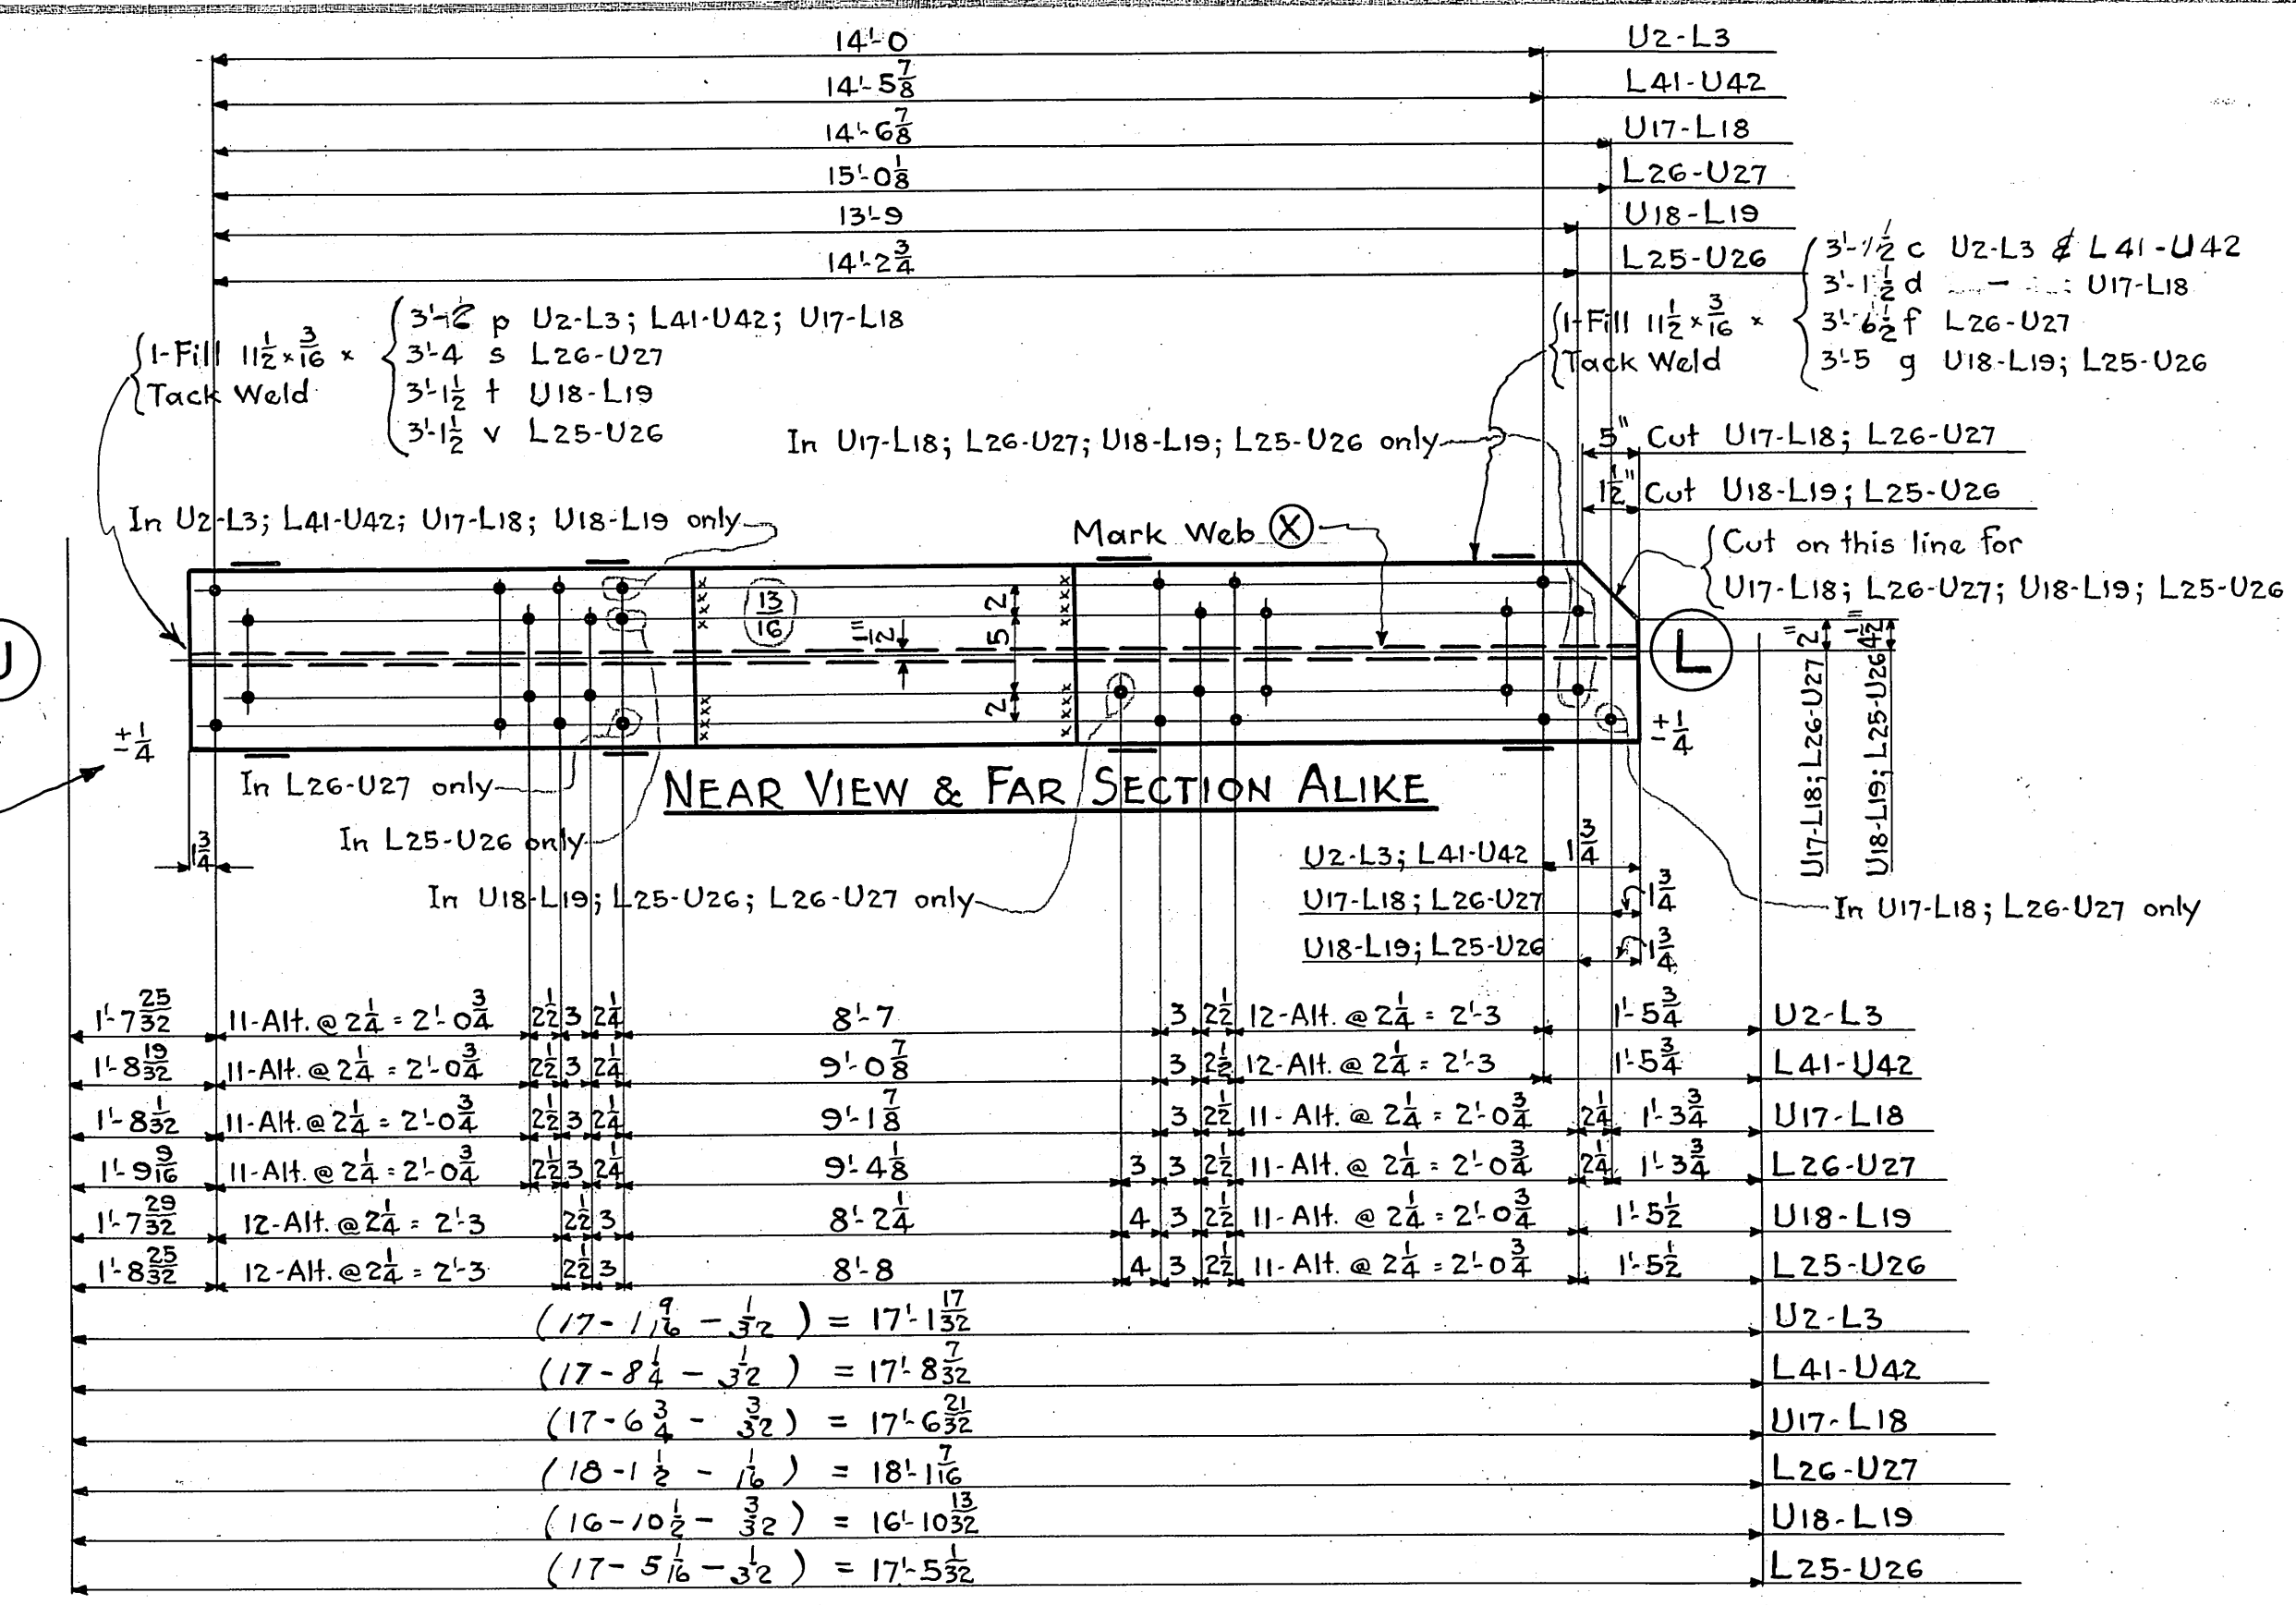 14'-0 U2-L3
14'-5 7/8 L41-U42
14'-6 7/8 U17-L18
15'-0 1/8 L26-U27
13'-9 U18-L19
14'-2 3/4 L25-U26
1-Fill 11 1/2 x 3/16 x
Tack Weld
p U2-L3; L41-U42; U17-L18
3'-4 s L26-U27
3'-1 1/2 t U18-L19
3'-1 1/2 v L25-U26
1-Fill 11 1/2 x 3/16 x
Tack Weld
3'-1 1/2 c U2-L3 & L41-U42
3'-1 1/2 d U17-L18
3'-6 1/2 f L26-U27
3'-5 g U18-L19; L25-U26
In U17-L18; L26-U27; U18-L19; L25-U26 only
5" Cut U17-L18; L26-U27
1 1/2" Cut U18-L19; L25-U26
In U2-L3; L41-U42; U17-L18; U18-L19 only
Mark Web X
Cut on this line for
U17-L18; L26-U27; U18-L19; L25-U26
13/16
1/2"
2
5
2
U
L
2" U17-L18; L26-U27
4 1/2" U18-L19; L25-U26
± 1/4
± 1/4
In L26-U27 only
NEAR VIEW & FAR SECTION ALIKE
In L25-U26 only
1 3/4
U2-L3; L41-U42 1 3/4
In U18-L19; L25-U26; L26-U27 only
U17-L18; L26-U27 1 3/4
In U17-L18; L26-U27 only
U18-L19; L25-U26 1 3/4
1'-7 25/32 11-Alt. @ 2 1/4 = 2'-0 3/4 2 1/2 3 2 1/4 8'-7 3 2 1/2 12-Alt. @ 2 1/4 = 2'-3 1'-5 3/4 U2-L3
1'-8 19/32 11-Alt. @ 2 1/4 = 2'-0 3/4 2 1/2 3 2 1/4 9'-0 7/8 3 2 1/2 12-Alt. @ 2 1/4 = 2'-3 1'-5 3/4 L41-U42
1'-8 1/32 11-Alt. @ 2 1/4 = 2'-0 3/4 2 1/2 3 2 1/4 9'-1 7/8 3 2 1/2 11-Alt. @ 2 1/4 = 2'-0 3/4 2 1/4 1'-3 3/4 U17-L18
1'-9 9/16 11-Alt. @ 2 1/4 = 2'-0 3/4 2 1/2 3 2 1/4 9'-4 1/8 3 3 2 1/2 11-Alt. @ 2 1/4 = 2'-0 3/4 2 1/4 1'-3 3/4 L26-U27
1'-7 29/32 12-Alt. @ 2 1/4 = 2'-3 2 1/2 3 8'-2 1/4 4 3 2 1/2 11-Alt. @ 2 1/4 = 2'-0 3/4 1'-5 1/2 U18-L19
1'-8 25/32 12-Alt. @ 2 1/4 = 2'-3 2 1/2 3 8'-8 4 3 2 1/2 11-Alt. @ 2 1/4 = 2'-0 3/4 1'-5 1/2 L25-U26
(17-1 9/16 - 1/32) = 17'-1 17/32 U2-L3
(17-8 1/4 - 1/32) = 17'-8 7/32 L41-U42
(17-6 3/4 - 3/32) = 17'-6 21/32 U17-L18
(18-1 1/2 - 1/16) = 18'-1 7/16 L26-U27
(16-10 1/2 - 3/32) = 16'-10 13/32 U18-L19
(17-5 1/16 - 1/32) = 17'-5 1/32 L25-U26